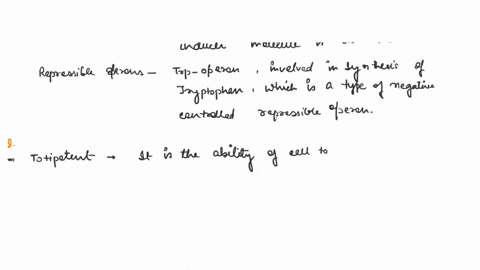 inducer molecule is
Repressible operons - Trp-operon, involved in synthesis of
Tryptophan, which is a type of negative
controlled repressible operon.
9.
- Totipotent → It is the ability of cell to